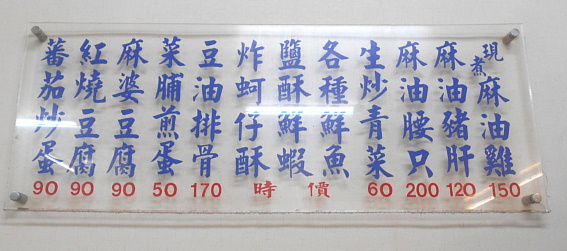 現煮麻油雞 150
麻油豬肝 120
麻油腰只 200
生炒青菜 60
各種鮮魚
鹽酥鮮蝦
時價
炸蚵仔酥
豆油排骨 170
菜脯煎蛋 50
麻婆豆腐 90
紅燒豆腐 90
蕃茄炒蛋 90